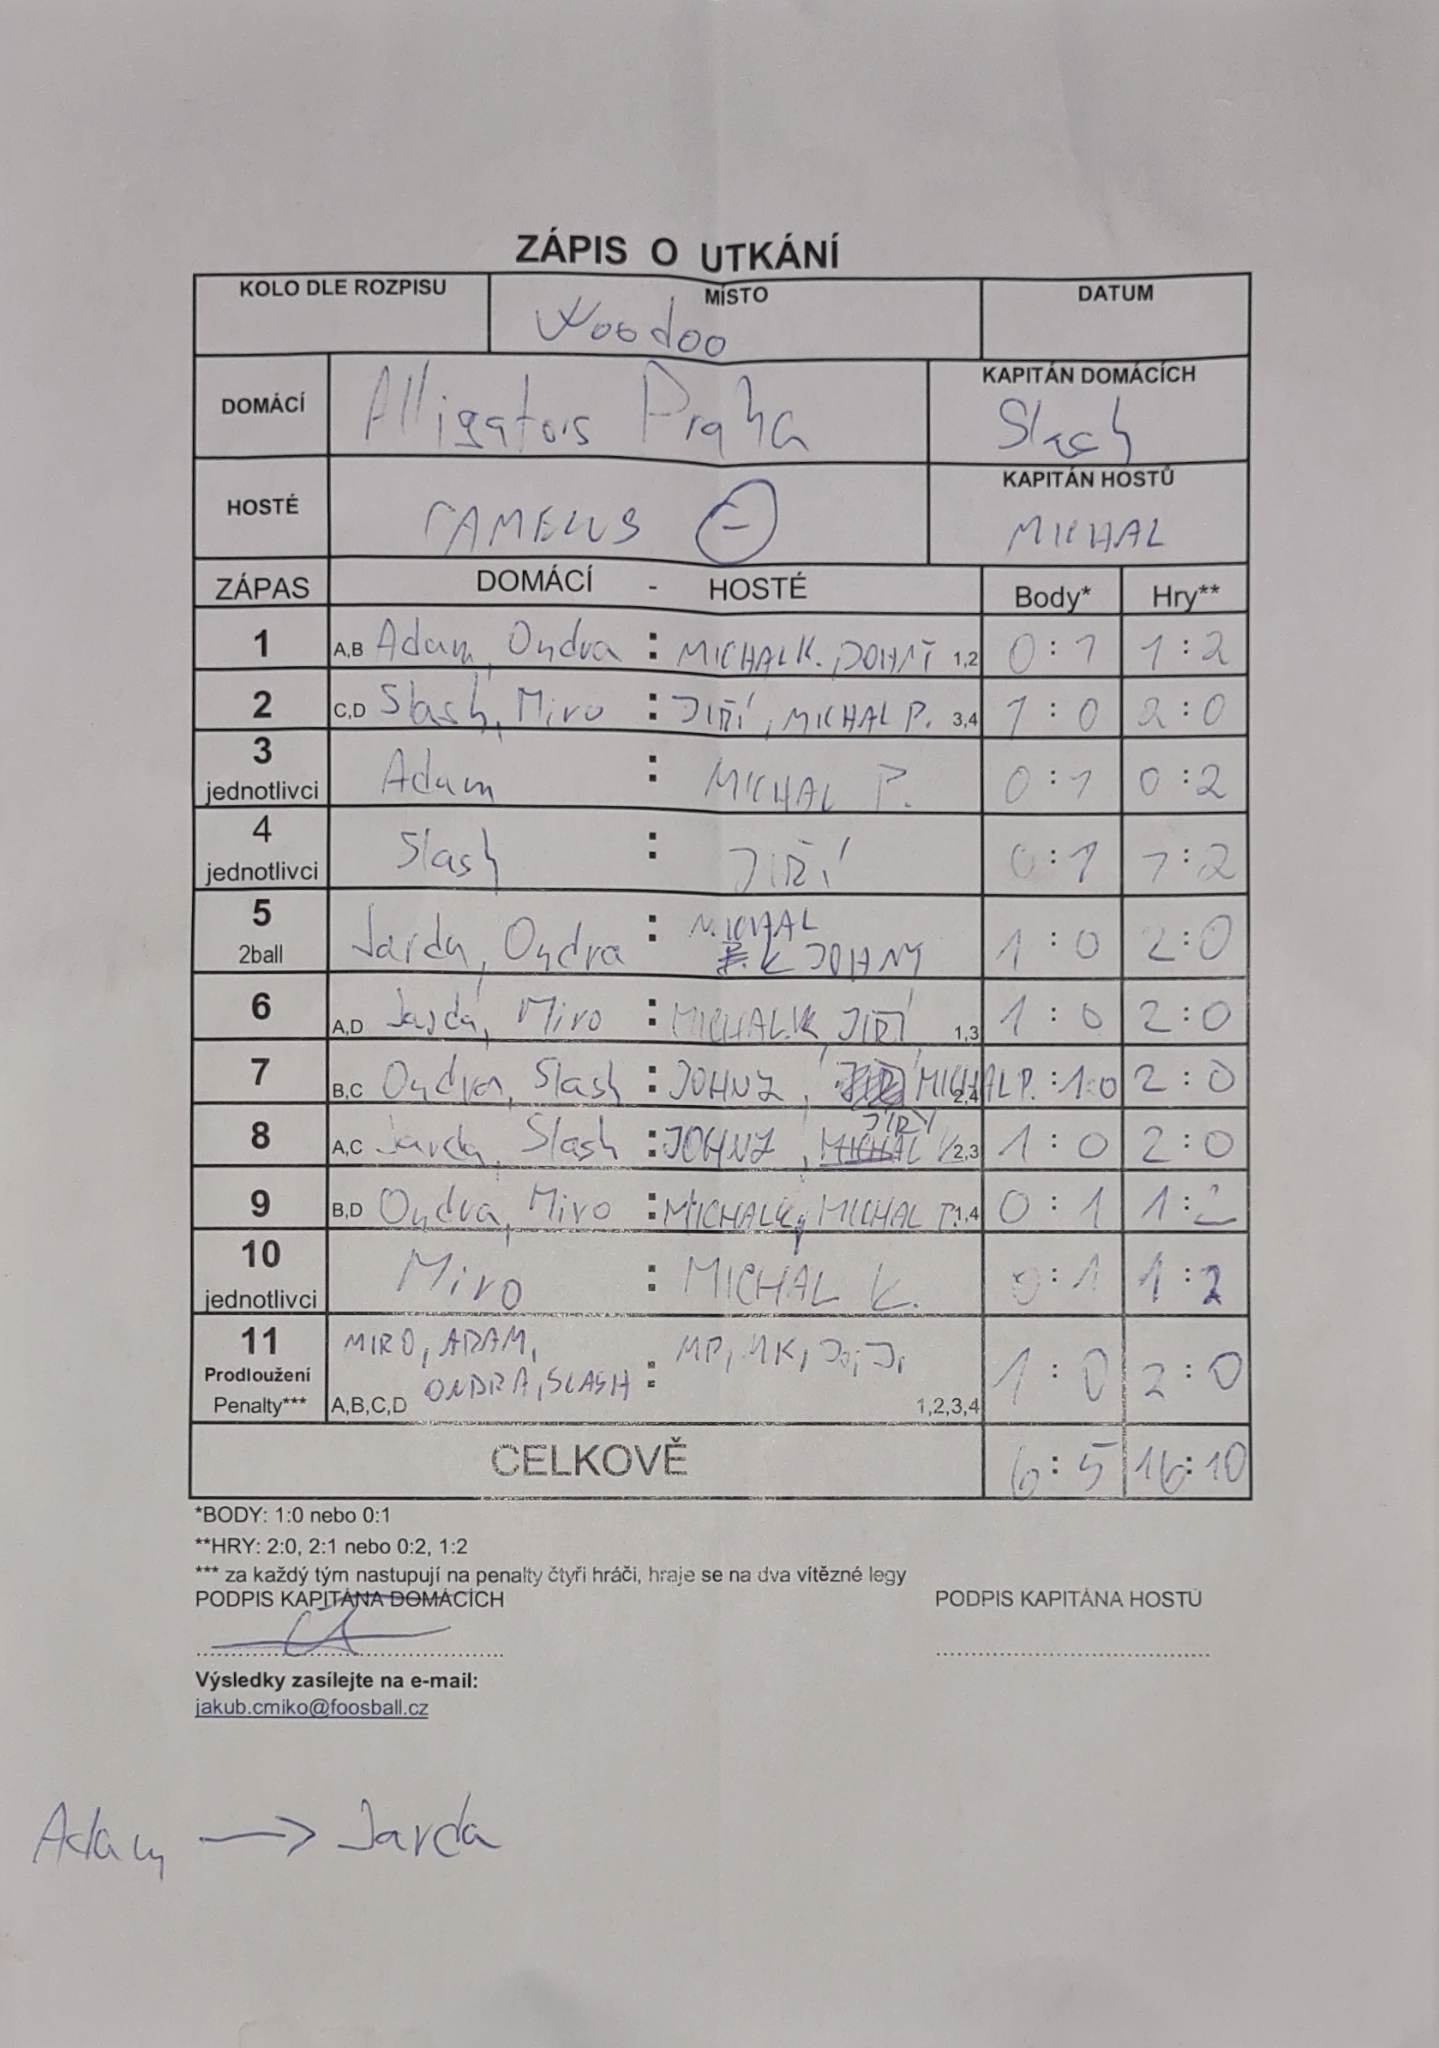 ZÁPIS O UTKÁNÍ
KOLO DLE ROZPISU MÍSTO DATUM
Woodoo
DOMÁCÍ Alligators Praha KAPITÁN DOMÁCÍCH
Slash
HOSTÉ CAMELUS KAPITÁN HOSTŮ
MICHAL
ZÁPAS DOMÁCÍ - HOSTÉ Body* Hry**
1 A,B Adam, Ondra : MICHAL K., JOHNY 1,2 0 : 1 1 : 2
2 C,D Slash, Miro : JIŘÍ, MICHAL P. 3,4 1 : 0 2 : 0
3 jednotlivci Adam : MICHAL P. 0 : 1 0 : 2
4 jednotlivci Slash : JIŘÍ 0 : 1 1 : 2
5 2ball Jarda, Ondra : MICHAL K JOHNY 1 : 0 2 : 0
6 A,D Jarda, Miro : MICHAL K, JIŘÍ 1,3 1 : 0 2 : 0
7 B,C Ondra, Slash : JOHNY, MICHAL P. 2,4 : 1:0 2 : 0
8 A,C Jarda, Slash : JOHNY, JIŘÍ 2,3 1 : 0 2 : 0
9 B,D Ondra, Miro : MICHAL K, MICHAL P. 1,4 0 : 1 1 : 2
10 jednotlivci Miro : MICHAL K. 0 : 1 1 : 2
11 MIRO, ADAM, : MP, MK, Jo, Ji 1 : 0 2 : 0
Prodloužení ONDRA, SLASH
Penalty*** A,B,C,D 1,2,3,4
CELKOVĚ 6 : 5 16:10
*BODY: 1:0 nebo 0:1
**HRY: 2:0, 2:1 nebo 0:2, 1:2
*** za každý tým nastupují na penalty čtyři hráči, hraje se na dva vítězné legy
PODPIS KAPITÁNA DOMÁCÍCH PODPIS KAPITÁNA HOSTŮ
Výsledky zasílejte na e-mail:
jakub.cmiko@foosball.cz
Adam → Jarda